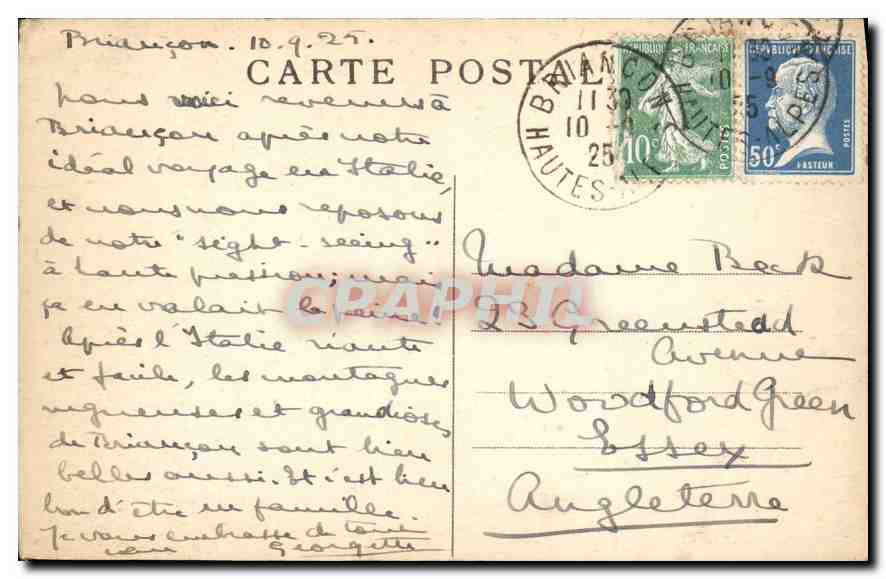 Briançon. 10.9.25.
CARTE POSTALE
nous voici revenus à
Briançon après notre
idéal voyage en Italie,
et nous nous reposons
de notre "sight-seeing"
à haute pression; mais
ça en valait la peine!
Après l'Italie riante
et facile, les montagnes
vigneuses et grandioses
de Briançon sont bien
belles aussi. Et c'est bien
bon d'être en famille.
Je vous embrasse de tout
Georgette
BRIANCON
11 30
10 -9
25
HAUTES-ALPES
REPUBLIQUE FRANCAISE
10c
POSTES
REPUBLIQUE FRANCAISE
50c
POSTES
PASTEUR
10 -9
HAUTES-ALPES
CPAPHIL
Madame Beck
23 Greenstedd
Avenue
Woodford Green
Essex
Angleterre